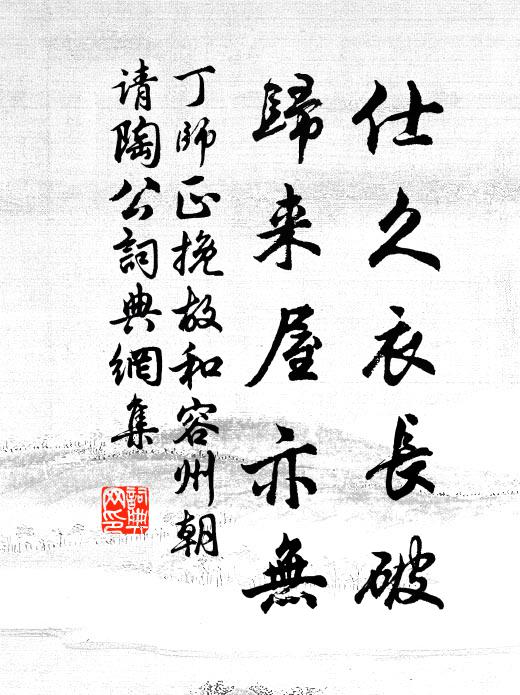 仕久衣長破
歸来屋亦無
丁師正挽故和容州朝
请陶公詞典網集
詞典
网印